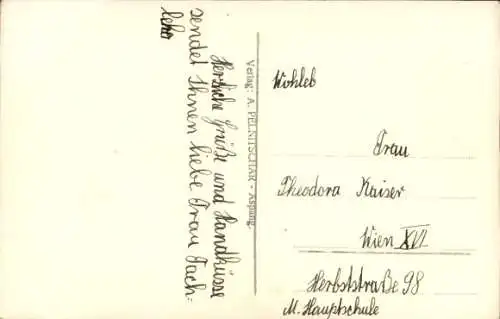 Herzliche Grüße und Handküsse
sendet Ihnen liebe Frau Fach-
lehr
Verlag: A. PELNITSCHAR - Aspang.
Wohleb
Frau
Theodora Kaiser
Wien XVI
Herbststraße 98
M. Hauptschule